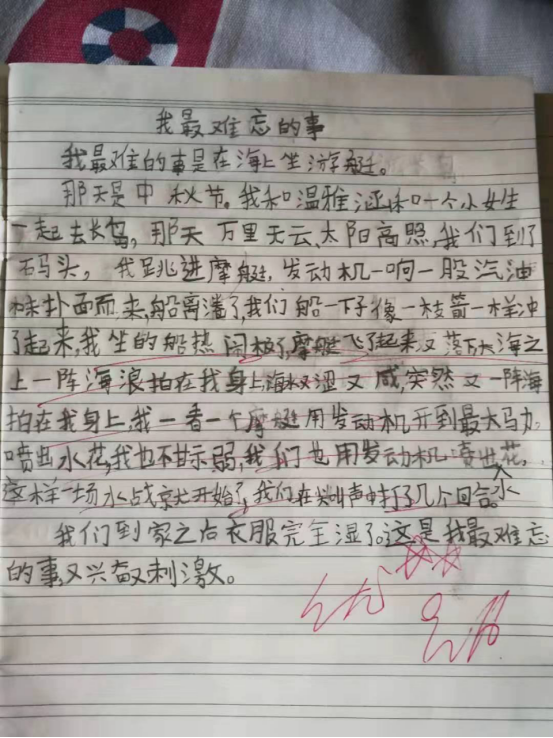 我最难忘的事
我最难的事是在海上坐游艇。
那天是中秋节。我和温雅涵和一个小女生
一起去长岛，那天万里无云、太阳高照，我们到了
码头，我跳进摩艇，发动机一响一股汽油
味扑面而来，船离潘了，我们船一下子像一枝箭一样冲
了起来，我坐的船热闹极了，摩艇飞了起来又落下大海之
上一阵海浪拍在我身上海水又涩又咸，突然又一阵海
拍在我身上，我一看一个摩艇用发动机开到最大马力
喷出水花，我也不甘示弱，我们也用发动机喷出水花，
这样一场水战就开始了，我们在尖叫声中打了几个回合。
我们到家之后衣服完全湿了。这是我最难忘
的事，又兴奋又刺激。